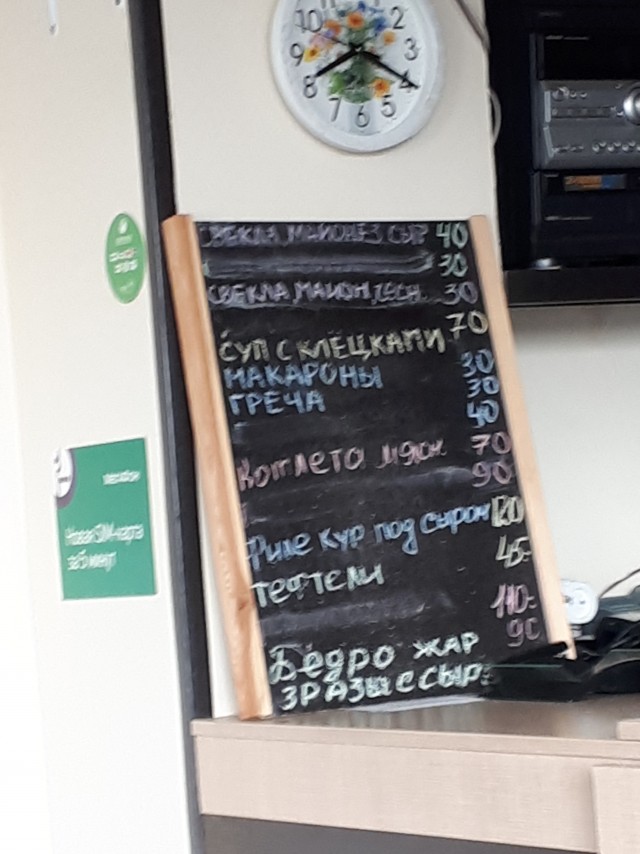 10 2
9 3
8 4
7 6 5
СВЕКЛА МАЙОНЕЗ СЫР 40
30
СВЕКЛА МАЙОН, ЧЕСН. 30
70
СУП С КЛЁЦКАМИ
МАКАРОНЫ 30
ГРЕЧА 30
40
Котлета мясн 70
90
Филе кур под сыром 120
45-
тефтели
110-
90
Бедро ЖАР
ЗРАЗЫ С СЫР
МЕГАФОН
Новая SIM-карта
за 5 минут!